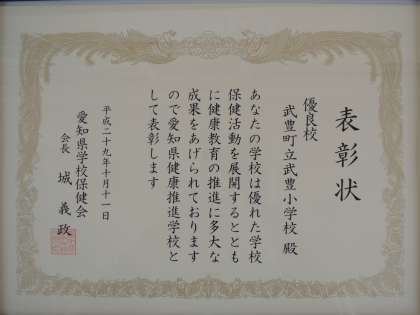 表彰状
優良校
武豊町立武豊小学校 殿
あなたの学校は優れた学校
保健活動を展開するととも
に健康教育の推進に多大な
成果をあげられております
ので愛知県健康推進学校と
して表彰します
平成二十九年十月十一日
愛知県学校保健会
会長 城 義政